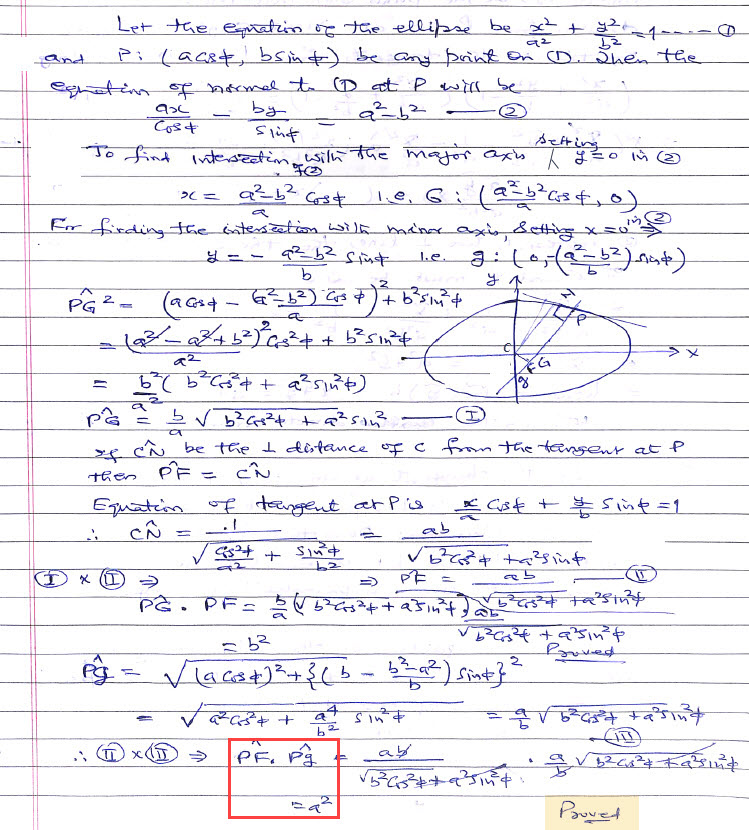 Let the equation of the ellipse be x²/a² + y²/b² = 1 ----- ①
and P: (a cosφ, b sinφ) be any point on ①. Then the
equation of normal to ① at P will be
ax/cosφ - by/sinφ = a²-b² — ②
To find intersection of ② with the major axis, setting y=0 in ②
x = (a²-b²)/a cosφ i.e. G: ((a²-b²)/a cosφ, 0)
For finding the intersection with minor axis, Setting x=0 in ② ⇒
y = - (a²-b²)/b sinφ i.e. g: (0, -(a²-b²)/b sinφ)
PG² = (a cosφ - (a²-b²)/a cosφ)² + b² sin²φ
= (a² - a² + b²)²/a² cos²φ + b² sin²φ
= b²/a² (b² cos²φ + a² sin²φ)
PG = b/a √(b² cos²φ + a² sin² — Ⅰ
y
N
P
C
F G
g
X
If CN be the ⊥ distance of C from the tangent at P
then PF = CN
Equation of tangent at P is x/a cosφ + y/b sinφ = 1
∴ CN = 1/√(cos²φ/a² + sin²φ/b²) = ab/√(b² cos²φ + a² sin²φ)
Ⅰ × Ⅱ ⇒ ⇒ PF = ab/√(b² cos²φ + a² sin²φ) — Ⅱ
PG . PF = b/a (√(b² cos²φ + a² sin²φ)) ab/√(b² cos²φ + a² sin²φ)
= b² Proved
Pg = √((a cosφ)² + {(b - (b²-a²)/b) sinφ}²
= √(a² cos²φ + a⁴/b² sin²φ) = a/b √(b² cos²φ + a² sin²φ) — Ⅲ
∴ Ⅱ × Ⅲ ⇒ PF. Pg = ab/√(b² cos²φ + a² sin²φ) . a/b √(b² cos²φ + a² sin²φ)
= a² Proved